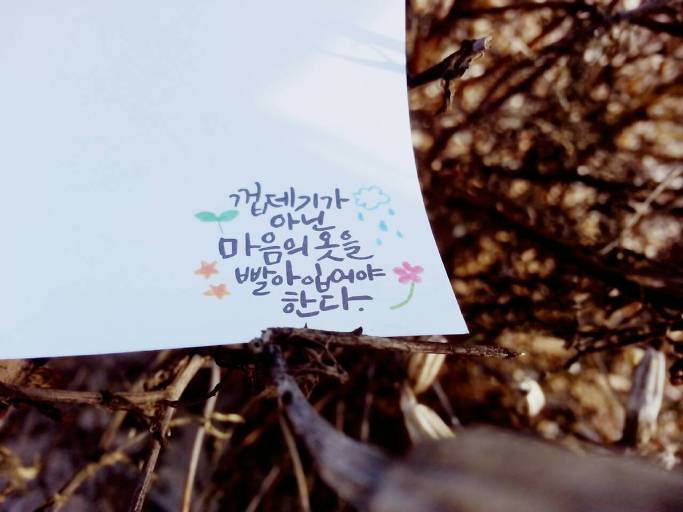 껍데기가
아닌
마음의 옷을
빨아입어야
한다.